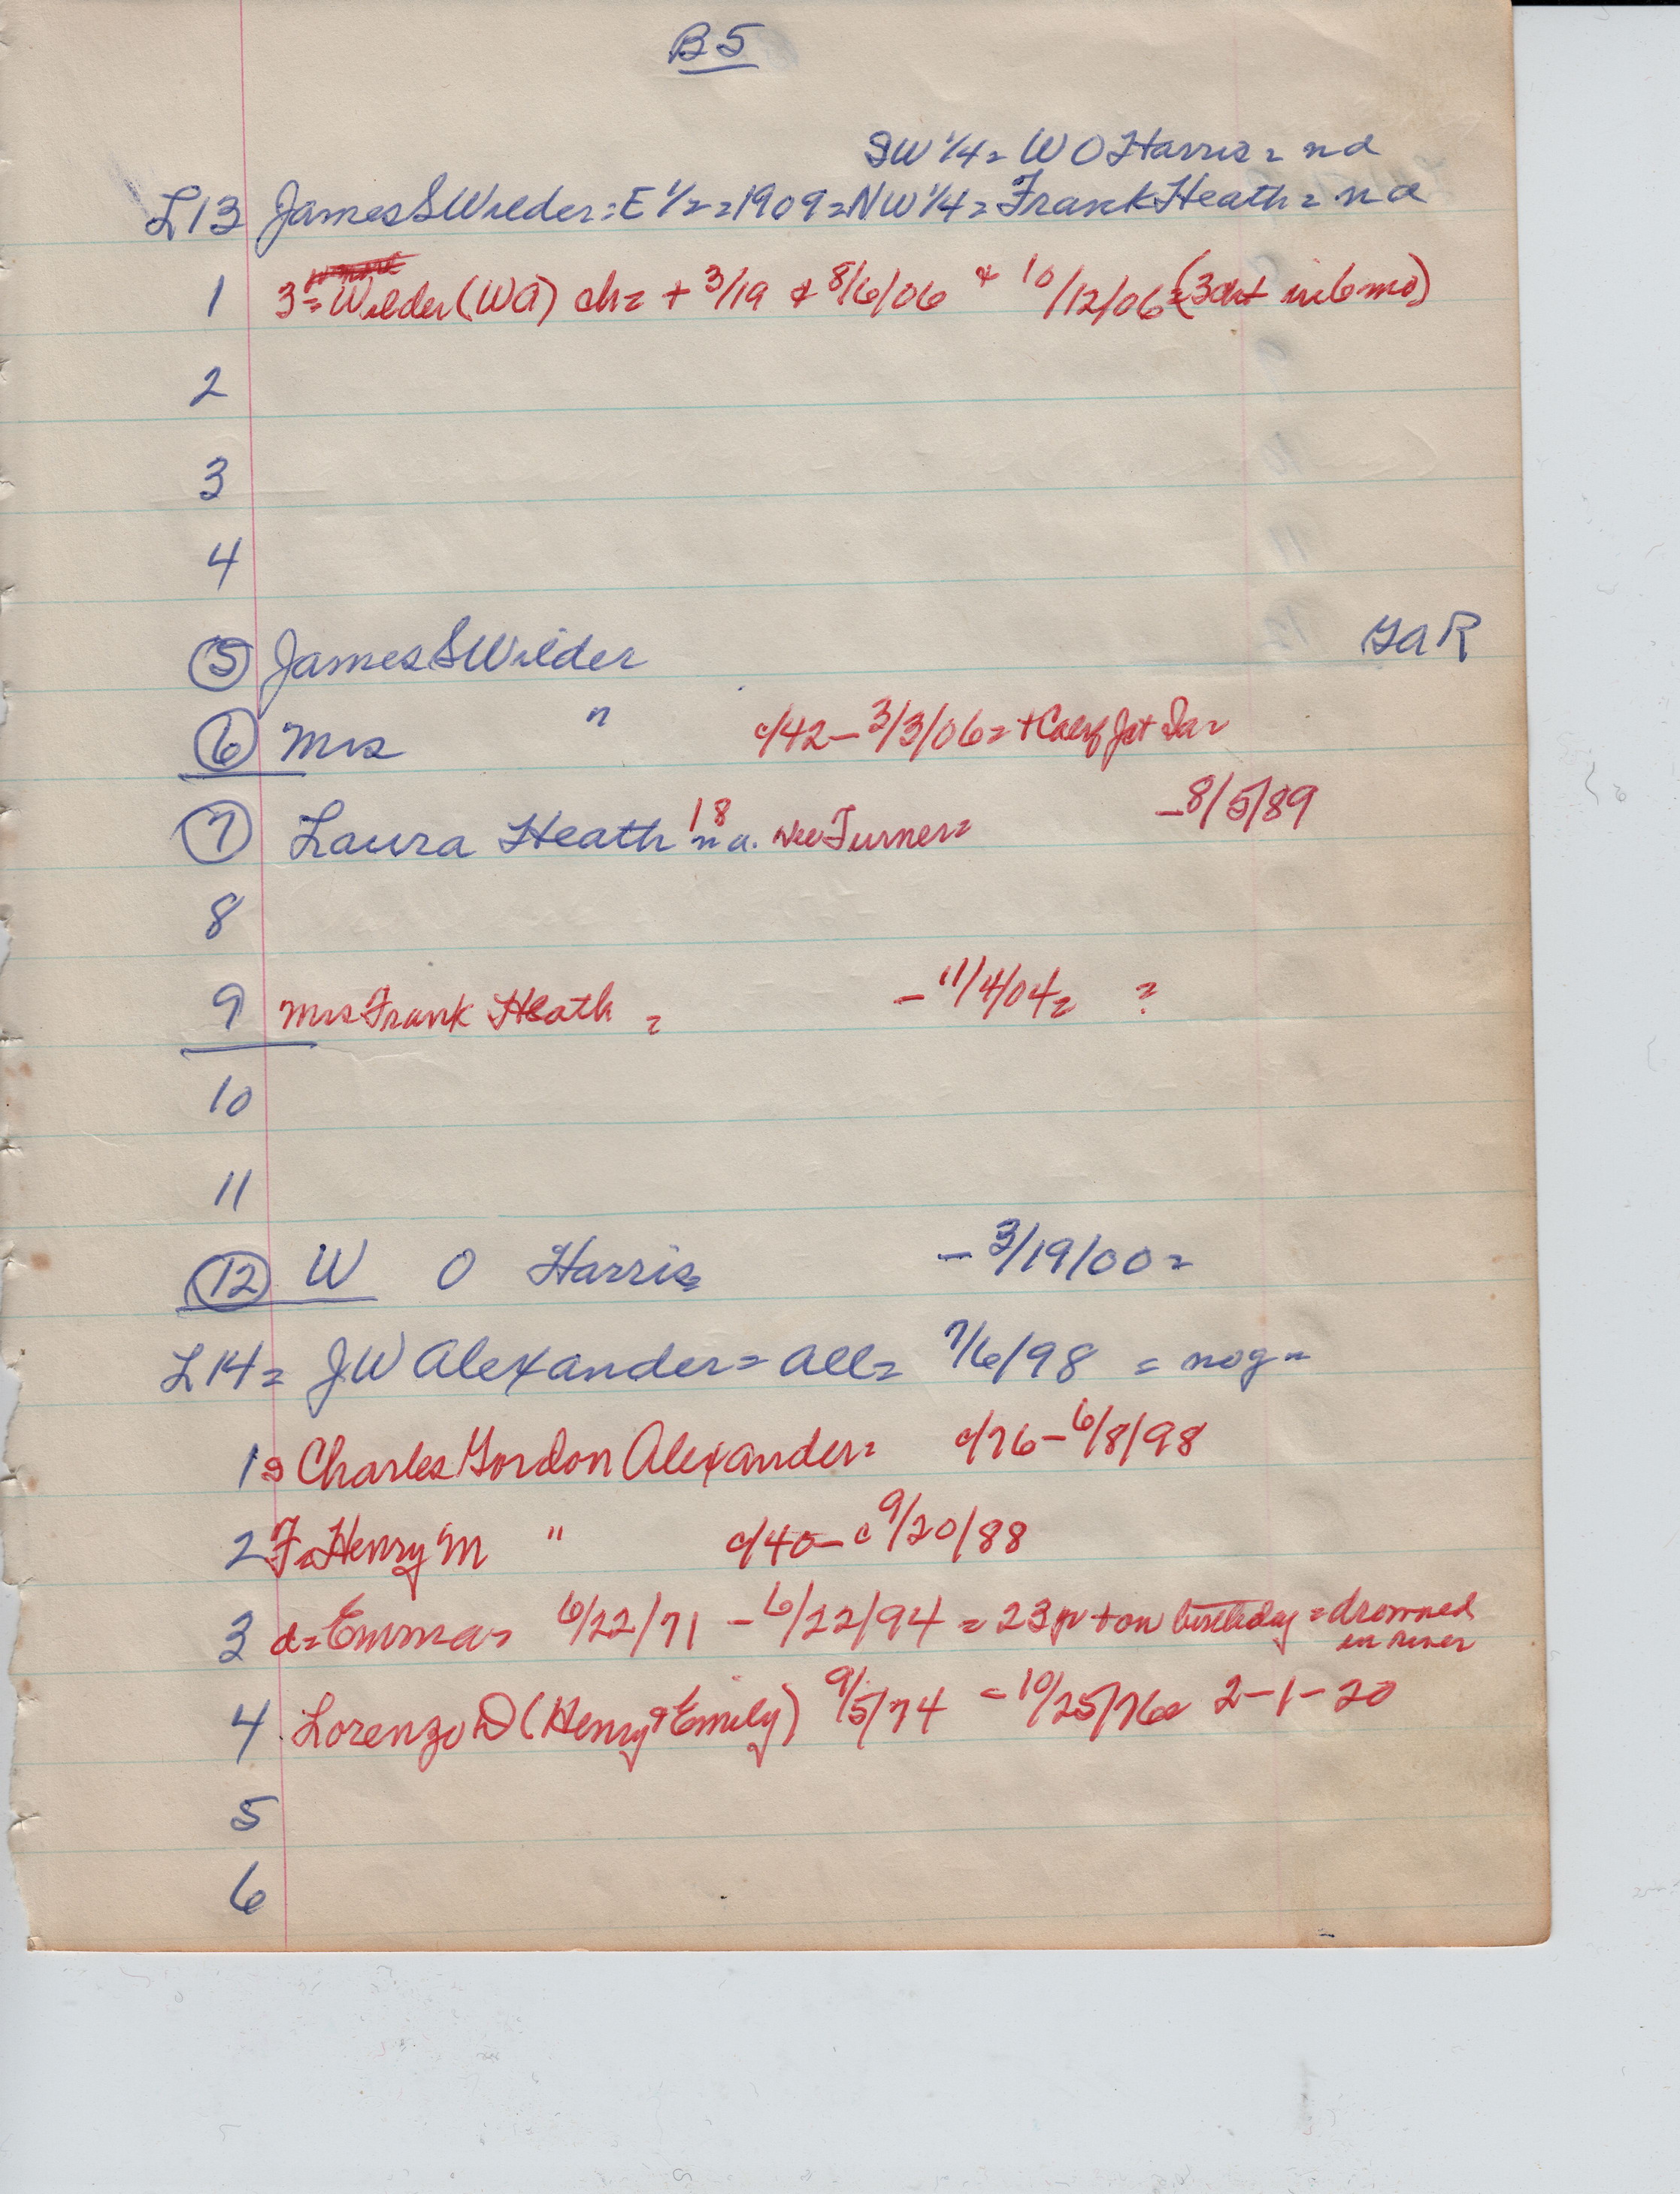 B5
SW 1/4 = W O Harris = nd
L13 James S Wilder = E 1/2 = 1909 = NW 1/4 = Frank Heath = nd
1 3 = Wilder (WA) ch = + 3/19 & 8/6/06 & 10/12/06 = (3 in 6 mo)
2
3
4
5 James S Wilder GAR
6 Mrs " c/42 - 3/3/06 = +
7 Laura Heath 18 na. Nee Turner = - 8/5/89
8
9 Mrs Frank Heath = - 11/4/04 = ?
10
11
12 W O Harris = - 3/19/00 =
L14 = J W Alexander = all = 7/6/98 = nog =
1 s Charles Gordon Alexander = c/76 - 6/8/98
2 F = Henry M " c/40 - c 9/20/88
3 d = Emma = 6/22/71 - 6/22/94 = 23 yr + on birthday = drowned
in river
4 Lorenzo D (Henry & Emily) 9/5/74 = 10/25/76 = 2-1-20
5
6